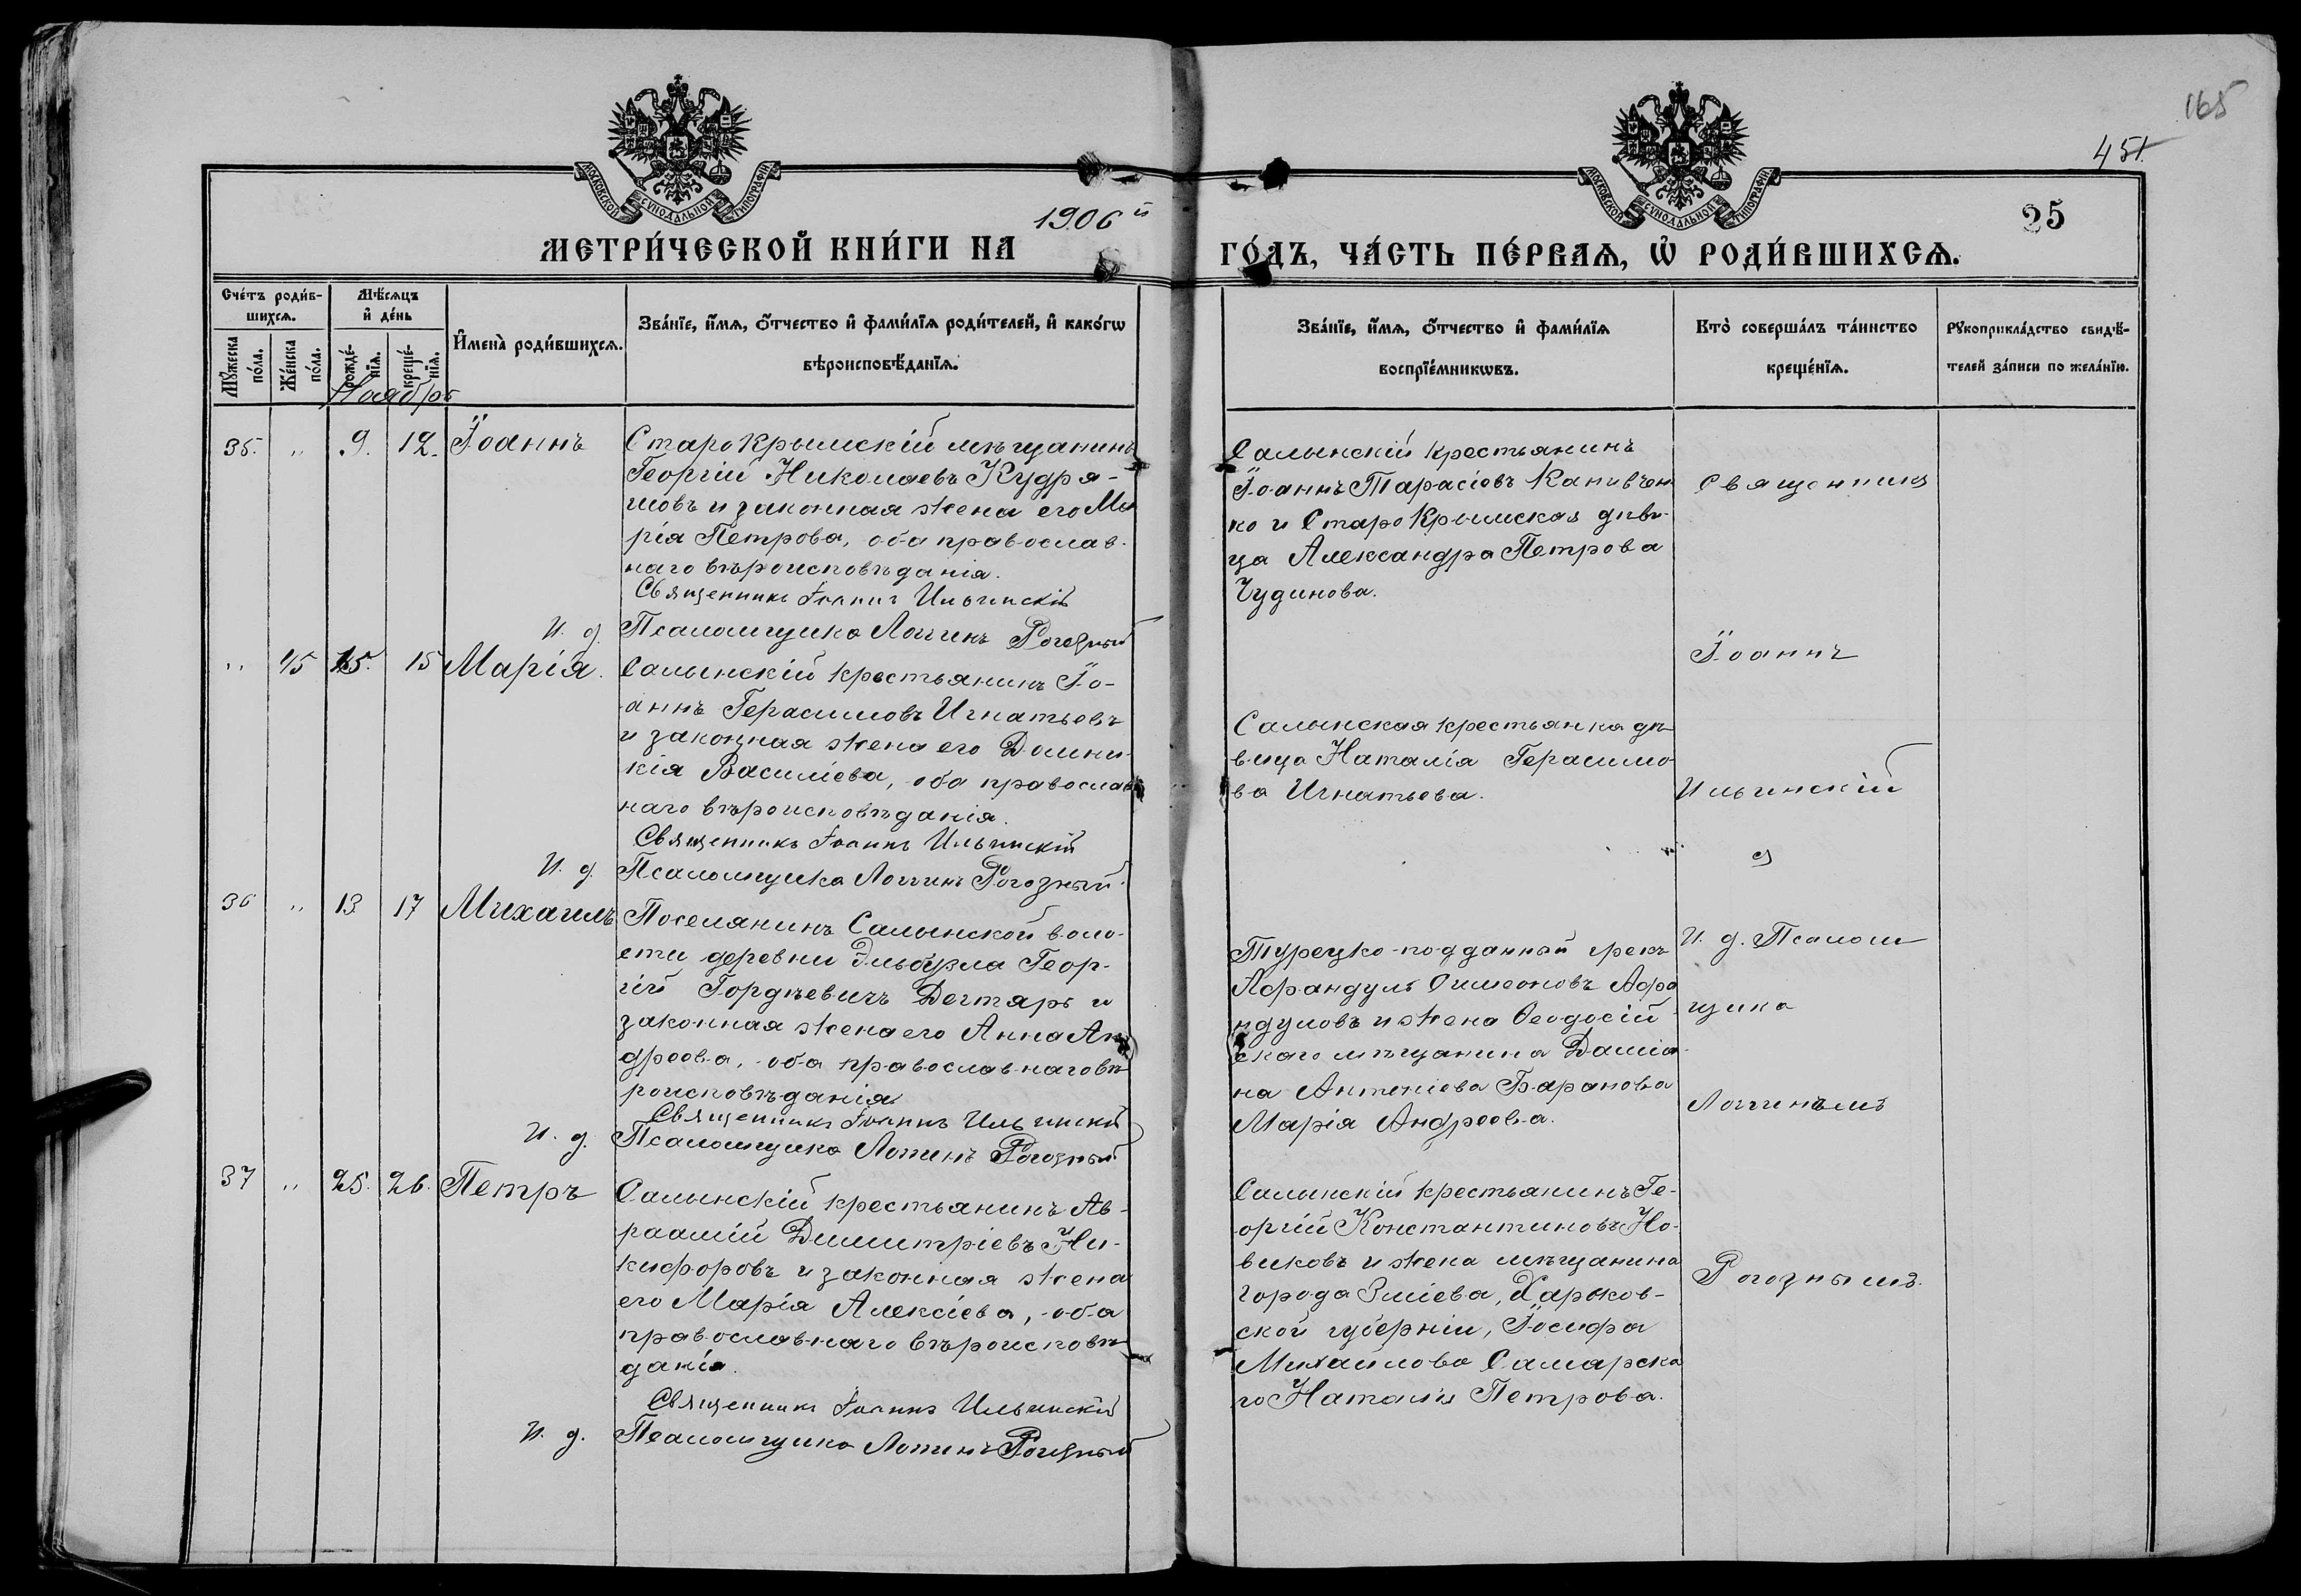 165
451.
МОСКОВСКОЙ СѴНОДАЛЬНОЙ ТИПОГРАФІИ
МОСКОВСКОЙ СѴНОДАЛЬНОЙ ТИПОГРАФІИ
25
МЕТРИ́ЧЕСКОЙ КНИ́ГИ НА 1906й ГО́ДЪ, ЧА́СТЬ ПЕ́РВАѦ, Ѡ҆ РОДИ́ВШИХСѦ.
Сче́тъ роди́в-
шихсѧ.
Мꙋ́жеска
по́ла.
Же́нска
по́ла.
Мѣ́сѧцъ
и҆ де́нь
рожде́-
нїѧ.
креще́-
нїѧ.
И҆мена̀ роди́вшихсѧ.
Зва́нїе, и҆́мѧ, ѻ҆́тчество и҆ фами́лїѧ роди́телей, и҆ како́гѡ
вѣроисповѣ́данїѧ.
Зва́нїе, и҆́мѧ, ѻ҆́тчество и҆ фами́лїѧ
воспрїе́мникѡвъ.
Кто̀ соверша́лъ та́инство
креще́нїѧ.
Рꙋкоприкла́дство свидѣ́-
телей за́писи по жела́нїю.
Ноябрь
35. " 9. 12. Іоаннъ
СтароКрымскій мѣщанинъ
Георгій Николаевъ Кудря-
шовъ и законная жена его Ма
рія Петрова, оба православ-
наго вѣроисповѣданія.
Священникъ Іоаннъ Ильинскій
И. д. Псаломщика Логгинъ Рогозный
Салынскій крестьянинъ
Іоаннъ Тарасіевъ Канивчен
ко и СтароКрымская дѣви-
ца Александра Петрова
Чудинова.
" 45 15. 15 Марія.
Салынскій крестьянинъ Іо-
аннъ Герасимовъ Игнатьевъ
и законная жена его Домни-
кія Василіева, оба православ
наго вѣроисповѣданія.
Священникъ Іоаннъ Ильинскій
И. д. Псаломщика Логгинъ Рогозный.
Салынская крестьянка дѣ-
вица Наталія Герасимо-
ва Игнатьева.
36 " 13 17 Михаилъ
Поселянинъ Салынской воло-
сти деревни Эльбузла Геор-
гій Гордѣевичъ Дегтярь и
законная жена его Анна Ан
дреева, оба православнаго вѣ
роисповѣданія.
Священникъ Іоаннъ Ильинскій
И. д. Псаломщика Логгинъ Рогозный
Турецко-подданный грекъ
Афрандулъ Симеоновъ Афра
ндуловъ и жена Ѳеодосій
скаго мѣщанина Даміа-
на Антоніева Баранова
Марія Андреева.
37 " 25. 26. Петръ
Салынскій крестьянинъ Ав-
раамій Димитріевъ Ни-
кифоровъ и законная жена
его Марія Алексіева, оба
православнаго вѣроисповѣ
данія.
Священникъ Іоаннъ Ильинскій
И. д. Псаломщика Логгинъ Рогозный
Салынскій крестьянинъ Ге-
оргій Константиновъ Но-
виковъ и жена мѣщанина
города Зміева, Харьков-
ской губерніи, Іосифа
Михайлова Самарска
го Наталія Петрова.
Священникъ
Іоаннъ
Ильинскій
съ
И. д. Псалом
щика
Логгиномъ
Рогознымъ.